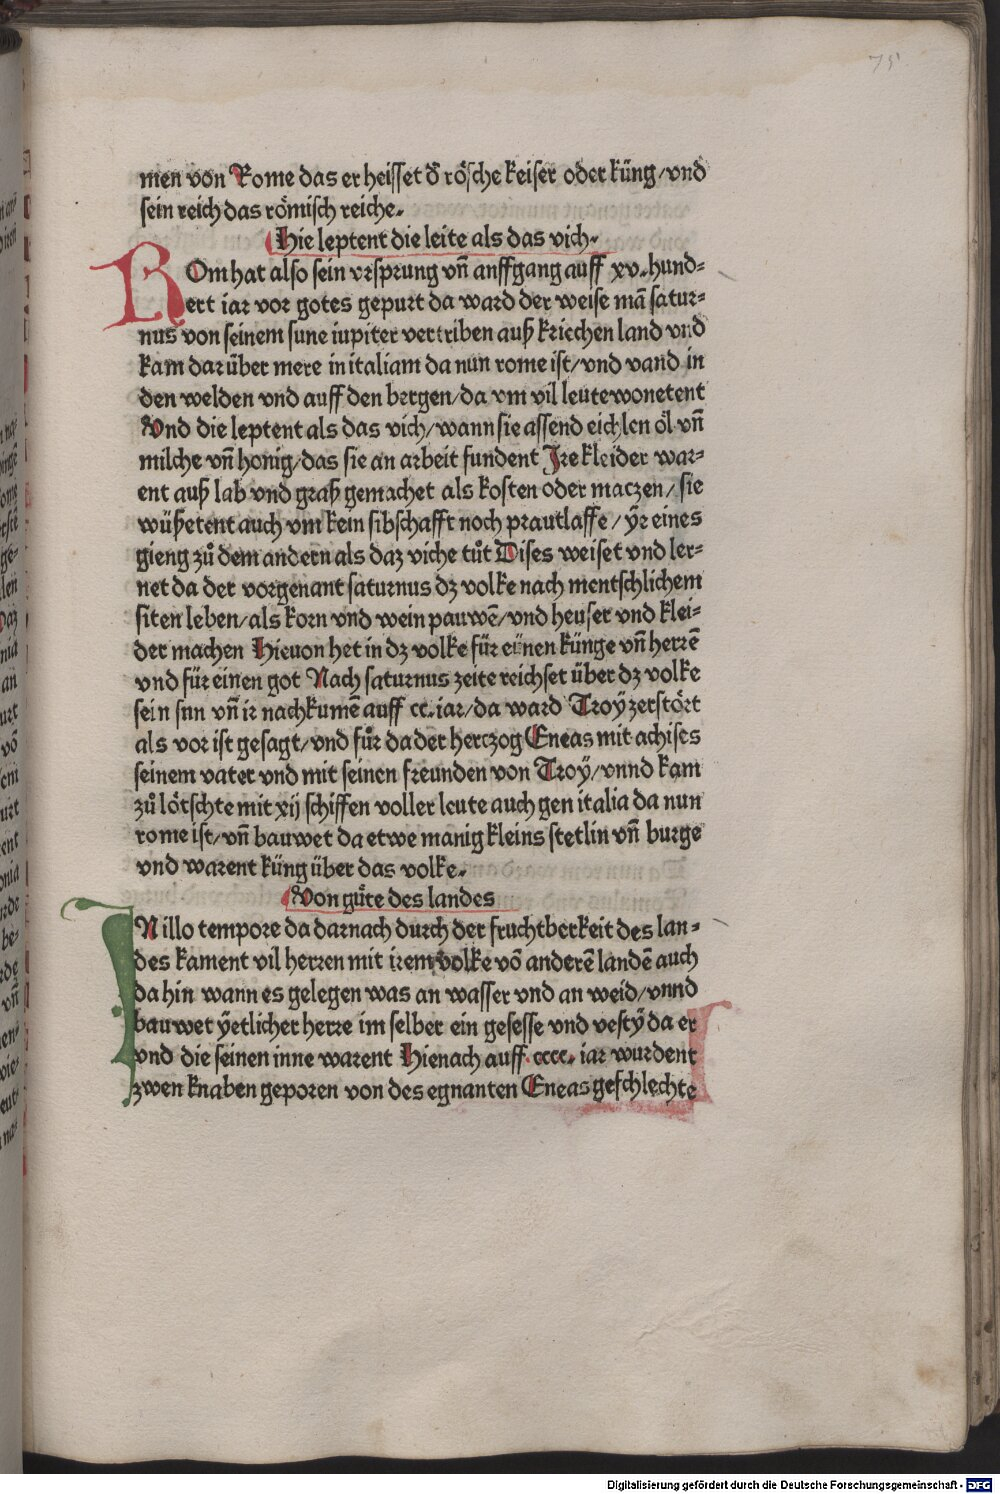 75
men von Rome das er heisset d̄ rösche keiser oder küng/vnd
sein reich das römisch reiche.
Hie leptent die leite als das vich.
ROm hat also sein vrsprung vn̄ anffgang auff xv.hund-
ert iar vor gotes gepurt da ward der weise mā satur-
nus von seinem sune iupiter vertriben auß kriechen land vnd
kam dar über mere in italiam da nun rome ist/vnd vand in
den welden vnd auff den bergen/da vm vil leute wonetent
Vnd die leptent als das vich/wann sie assend eichlen öl vn̄
milche vn̄ honig/das sie an arbeit fundent Ire kleider war-
ent auß lab vnd graß gemachet als kosten oder maczen/sie
wüßetent auch vm kein sibschafft noch prautlaffe/ÿr eines
gieng zů dem andern als daz viche tůt Dises weiset vnd ler-
net da der vorgenant saturnus dz volke nach mentschlichem
siten leben/als korn vnd wein pauwē/vnd heuser vnd klei-
der machen Hievon het in dz volke für einen künge vn̄ herrē
vnd für einen got Nach saturnus zeite reichset über dz volke
sein snn vn̄ ir nachkumē auff cc.iar/da ward Troÿ zerstört
als vor ist gesagt/vnd fůr da der herczog Eneas mit achises
seinem vater vnd mit seinen freunden von Troÿ/vnnd kam
zů lötschte mit xij schiffen voller leute auch gen italia da nun
rome ist/vn̄ bauwet da etwe manig kleins stetlin vn̄ burge
vnd warent küng über das volke.
Von gůte des landes
INillo tempore da darnach durch der fruchtberkeit des lan-
des kament vil herren mit irem volke vō anderē landē auch
da hin wann es gelegen was an wasser vnd an weid/vnnd
bauwet ÿetlicher herre im selber ein gesesse vnd vestÿ da er
vnd die seinen inne warent Hienach auff cccc. iar wurdent
zwen knaben geporen von des egnanten Eneas geschlechte
Digitalisierung gefördert durch die Deutsche Forschungsgemeinschaft - DFG